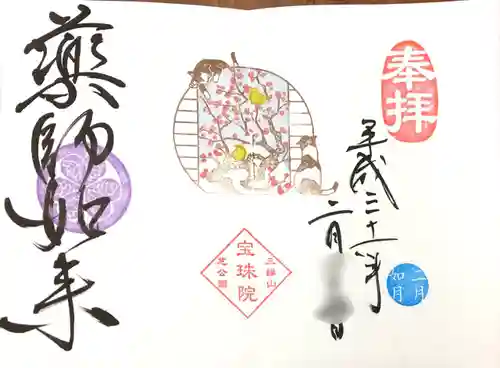 奉拝
平成三十一年
二月 日
二月
如月
三縁山
宝珠院
芝公園
薬師如来